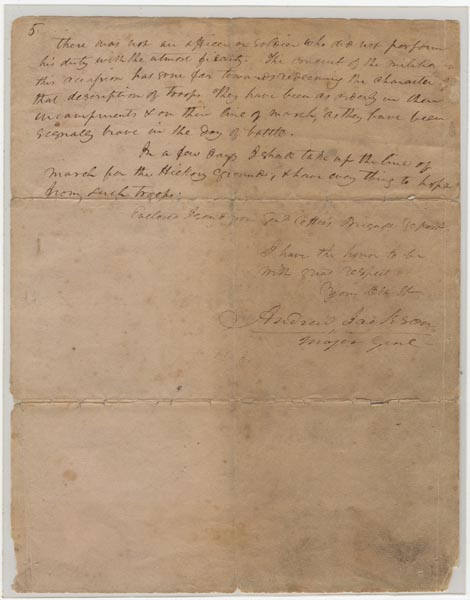 5
there was not an officer or soldier who did not perform
his duty with the utmost fidelity. The conduct of the militia
this occasion has gone far towards redeeming the character of
that description of troops. They have been as orderly in their
incampments & on their line of march, as they have been
signally brave in the day of battle.
In a few days I shall take up the line of
march for the Hickory Grounds, & have every thing to hope
from such troops.
Enclosed I send you Genl Coffee's Brigade report
I have the honor to be
with great respect
Your Ob St
Andrew Jackson
Major Genl